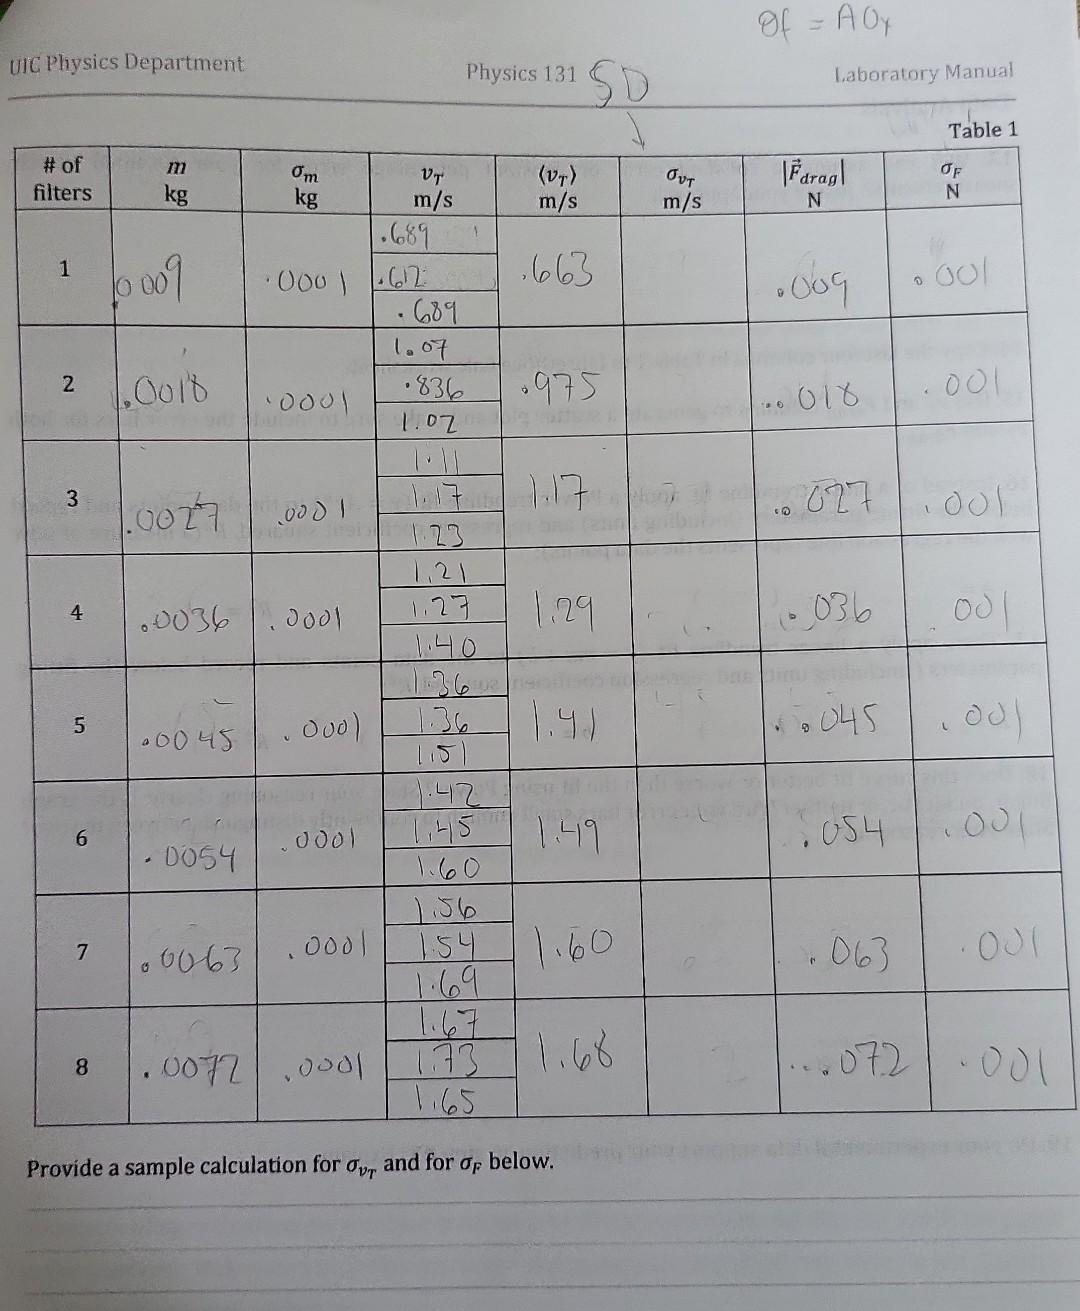 σf = A σx
UIC Physics Department Physics 131 SD Laboratory Manual
Table 1
# of filters m kg σm kg vT m/s ⟨vT⟩ m/s σvT m/s |F⃗drag| N σF N
.689
1 0.009 .0001 .612 .663 .009 .001
.689
1.07
2 .0018 .0001 .836 .975 .018 .001
1.02
1.11
3 .0027 .0001 1.17 1.17 .027 .001
1.23
1.21
4 .0036 .0001 1.27 1.29 .036 .001
1.40
1.36
5 .0045 .0001 1.36 1.41 .045 .001
1.51
1.42
6 .0054 .0001 1.45 1.49 .054 .001
1.60
1.56
7 .0063 .0001 1.54 1.60 .063 .001
1.69
1.67
8 .0072 .0001 1.73 1.68 .072 .001
1.65
Provide a sample calculation for σvT and for σF below.